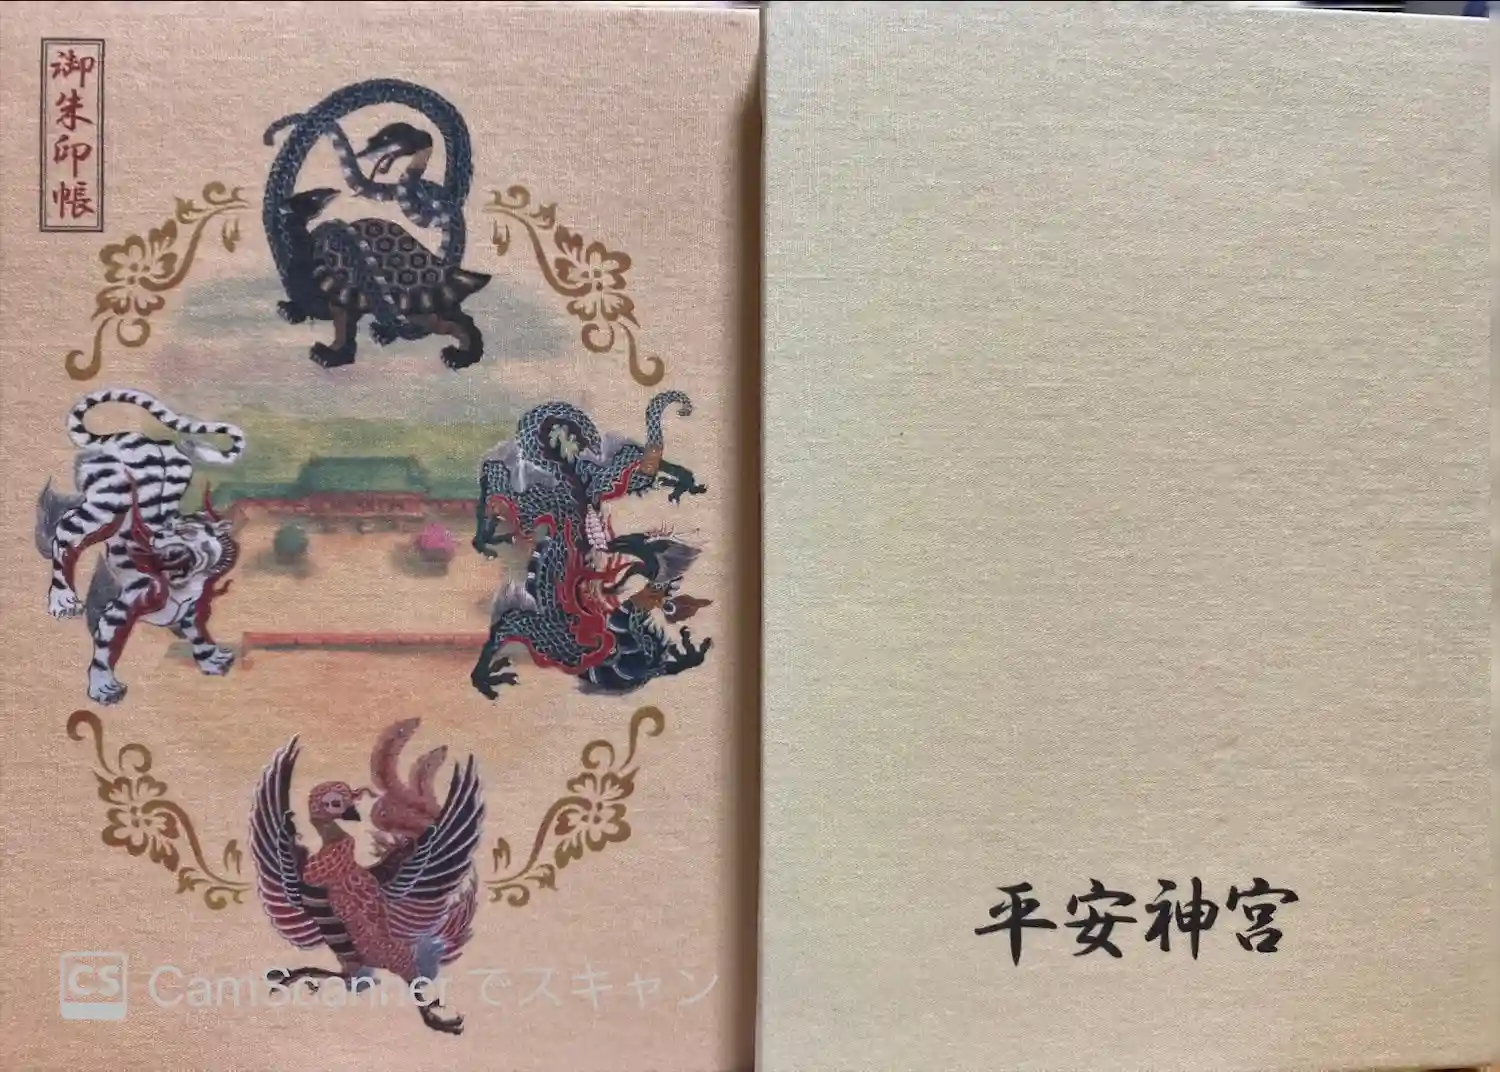 御朱印帳
平安神宮
CS CamScanner でスキャン